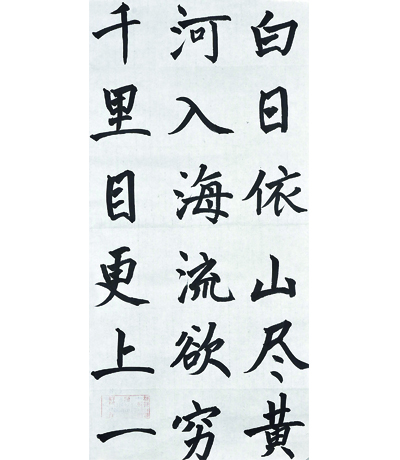 白日依山尽黄
河入海流欲穷
千里目更上一